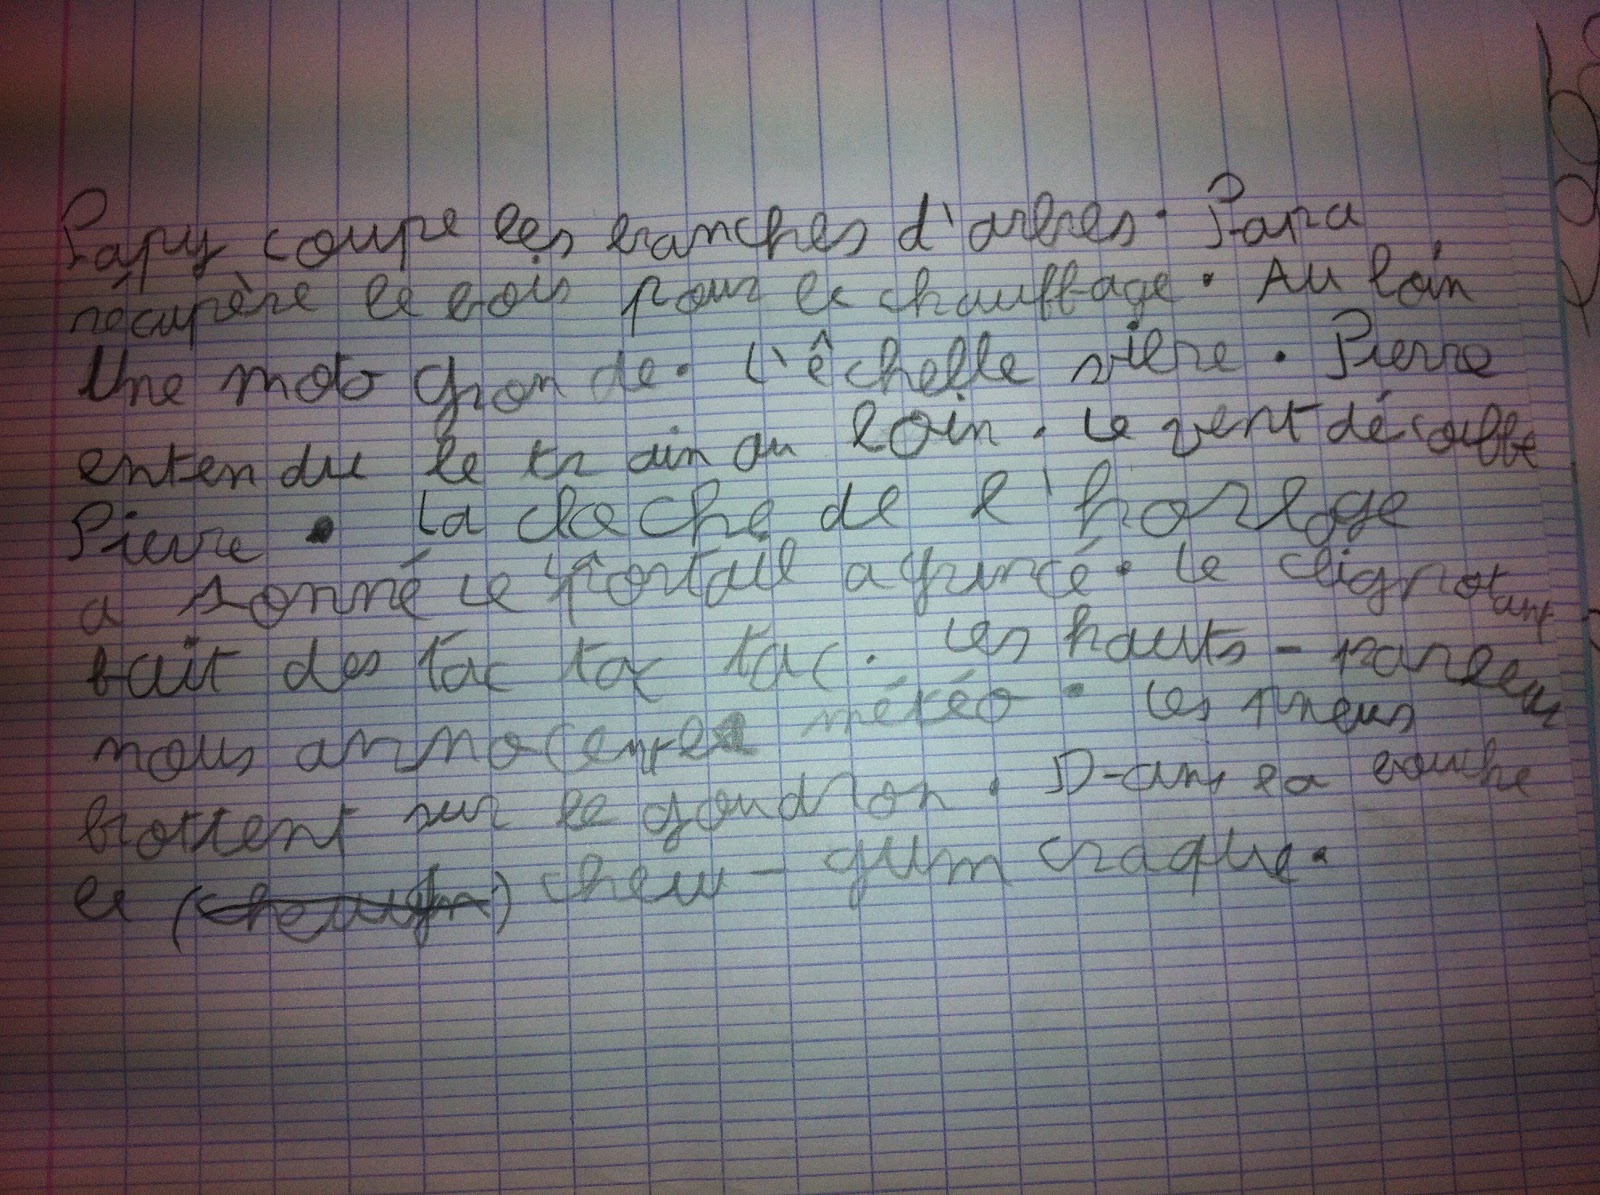 Papy coupe les branches d'arbres. Papa
récupère le bois pour le chauffage. Au loin
Une moto gronde. L'échelle vibre. Pierre
entendu le train au loin. Le vent décoiffe
Pierre. La cloche de l'horloge
a sonné Le portail a grincé. Le clignotant
fait des tac tac tac. Les hauts-parleurs
nous annocent la météo. Les pneus
frottent sur le goudron. Dans la bouche
le (chewgm) chew-gum craque.